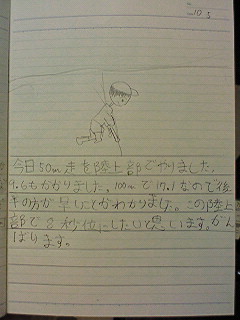 今日50m走を陸上部でやりました。
9.6もかかりました。100mで17.1なので後
半の方が早いことがわかりました。この陸上
部で8秒位にしたいと思います。がん
ばります。